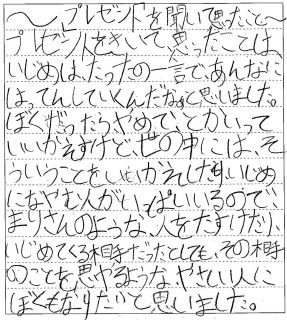 ～プレゼントを聞いて思ったこと～
プレゼントをきいて、思ったことは、
いじめは、たったの一言で、あんなに
はってんしていくんだなぁと思いました。
ぼくだったら、やめて、とかいって
いいかえすけど、世の中には、そ
ういうことをいいかえせずいじめ
になやむ人がいっぱいいるので、
まりさんのような、人をたすけたり、
いじめてくる相手だったとしても、その相手
のことを思いやるような、やさしい人に
ぼくもなりたいと思いました。